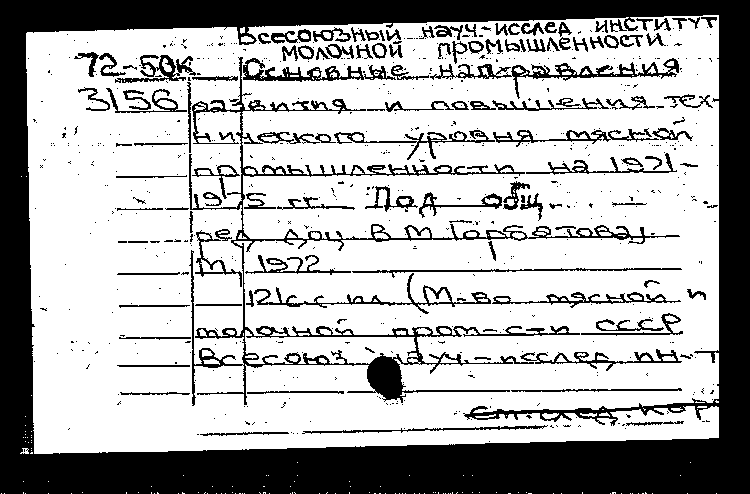 Всесоюзный науч.-исслед. институт
молочной промышленности
72-50к Основные направления
3156 развития и повышения тех-
нического уровня мясной
промышленности на 1971-
1975 гг. Под общ.
ред. доц. В М Горбатова.
М., 1972.
121с. с ил. (М-во мясной и
молочной пром-сти СССР
Всесоюз. науч.-исслед. ин-т
См. след. кор